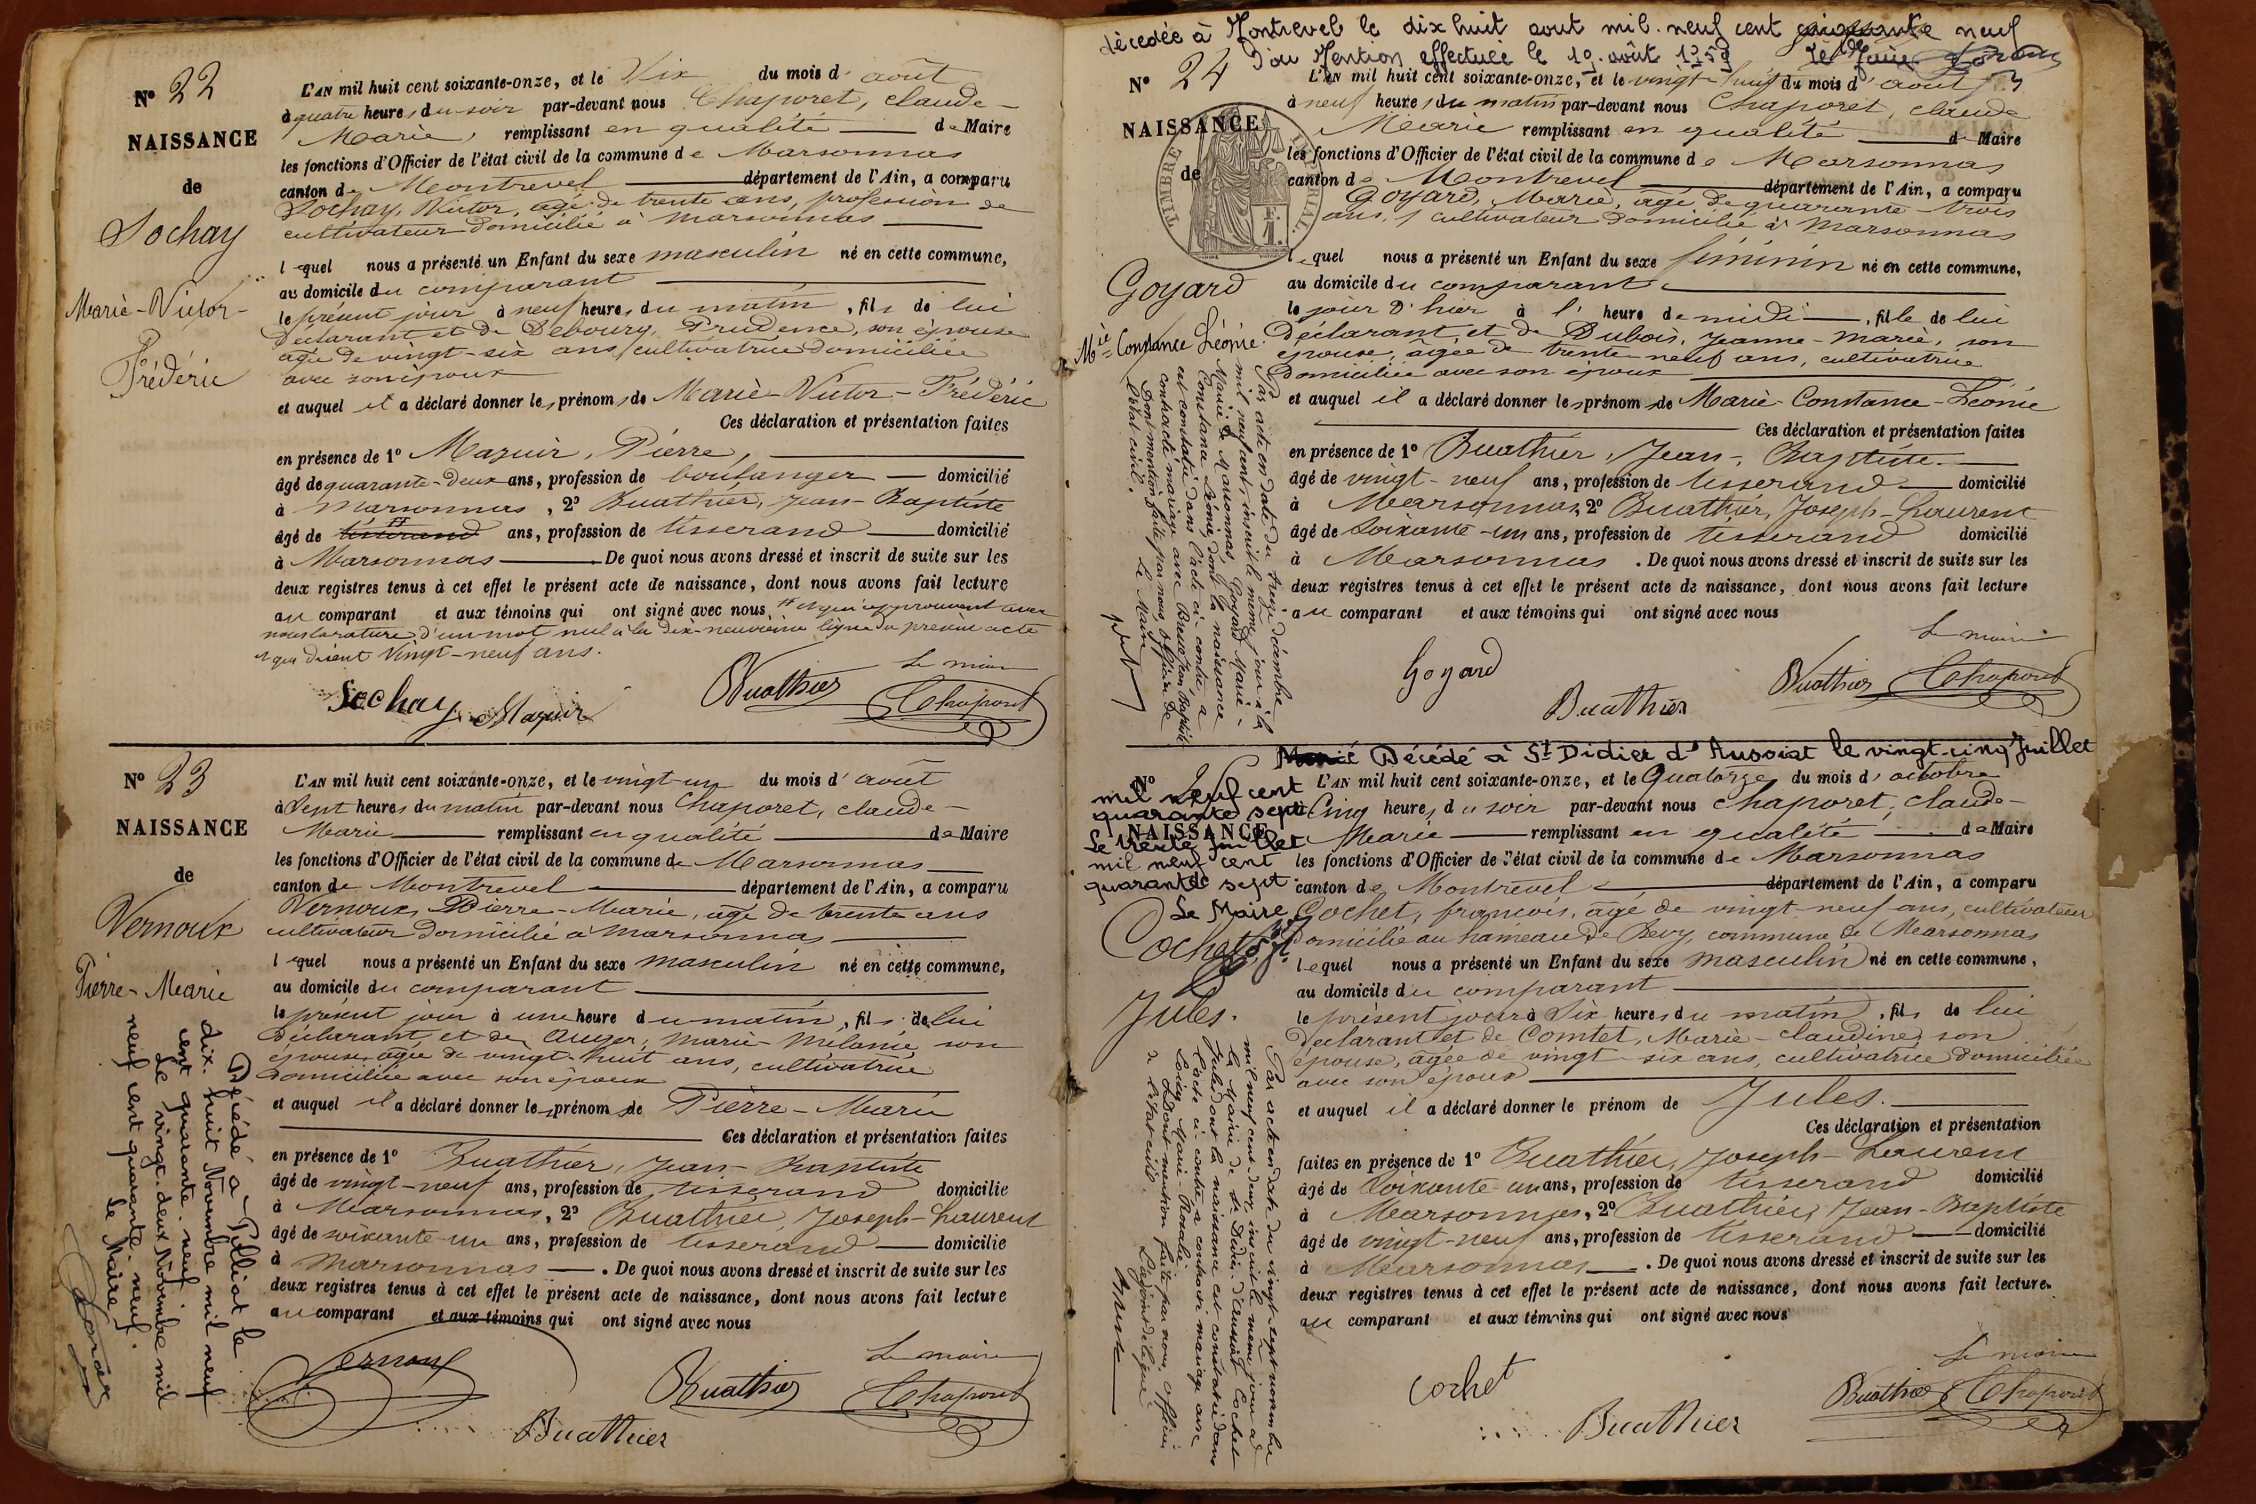 N° 22
NAISSANCE
de
Sochay
Marie-Victor-
Frédéric
L'AN mil huit cent soixante-onze, et le Dix du mois d'août
à quatre heures du soir par-devant nous Chaporet, Claude-
Marie, remplissant en qualité de Maire
les fonctions d'Officier de l'état civil de la commune de Marsonnas
canton de Montrevel département de l'Ain, a comparu
Sochay, Victor, agé de trente ans, profession de
cultivateur domicilié à Marsonnas
lequel nous a présenté un Enfant du sexe masculin né en cette commune,
au domicile du comparant
le présent jour à neuf heures du matin, fils de lui
Déclarant et de Deboury, Prudence, son épouse
agée de vingt-six ans, cultivatrice domiciliée
avec son époux
et auquel il a déclaré donner les prénoms de Marie-Victor-Frédéric
Ces déclaration et présentation faites
en présence de 1° Mazuir, Pierre,
âgé de quarante-deux ans, profession de boulanger domicilié
à Marsonnas, 2° Buathier, Jean-Baptiste
âgé de tisserand ans, profession de tisserand domicilié
à Marsonnas De quoi nous avons dressé et inscrit de suite sur les
deux registres tenus à cet effet le présent acte de naissance, dont nous avons fait lecture
au comparant et aux témoins qui ont signé avec nous et qui approuvent avec
nous la rature d'un mot nul à la dix-neuvième ligne du présent acte
et qui disent vingt-neuf ans.
Le maire
Sochay Mazuir Buathier Chaporet
N° 23
NAISSANCE
de
Vernoux
Pierre-Marie
Décédé à Polliat le
dix huit Novembre mil neuf
cent quarante neuf.
Le vingt-deux Novembre mil
neuf cent quarante-neuf.
Le Maire
L'AN mil huit cent soixante-onze, et le vingt-un du mois d'août
à Sept heures du matin par-devant nous Chaporet, Claude-
Marie remplissant en qualité de Maire
les fonctions d'Officier de l'état civil de la commune de Marsonnas
canton de Montrevel département de l'Ain, a comparu
Vernoux, Pierre-Marie, agé de trente ans
cultivateur domicilié à Marsonnas
lequel nous a présenté un Enfant du sexe masculin né en cette commune,
au domicile du comparant
le présent jour à une heure du matin, fils de lui
Déclarant et de Auger, Marie-Mélanie son
épouse, agée de vingt-huit ans, cultivatrice
domiciliée avec son époux
et auquel il a déclaré donner les prénoms de Pierre-Marie
Ces déclaration et présentation faites
en présence de 1° Buathier, Jean-Baptiste
âgé de vingt-neuf ans, profession de tisserand domicilié
à Marsonnas, 2° Buathier, Joseph-Laurent
âgé de soixante-un ans, profession de tisserand domicilié
à Marsonnas. De quoi nous avons dressé et inscrit de suite sur les
deux registres tenus à cet effet le présent acte de naissance, dont nous avons fait lecture
au comparant et aux témoins qui ont signé avec nous
Le maire
Vernoux Buathier Chaporet
Buathier
décédée à Montrevel le dix huit aout mil neuf cent cinquante neuf
D'où Mention effectuée le 19 août 1959 Le Maire
N° 24
NAISSANCE
de
TIMBRE IMPÉRIAL
Goyard
Mie Constance Léonie.
Par acte en date du treize décembre
mil neuf cent, inscrit le même jour à la
Mairie de Marsonnas, Goyard Marie-
Constance-Léonie, dont la naissance
est constatée dans l'acte ci-contre, a
contracté mariage avec Bresse Jean Baptiste
Dont mention faite par nous, officier de
l'état civil.
Le Maire
L'AN mil huit cent soixante-onze, et le vingt-huit du mois d'août
à neuf heures du matin par-devant nous Chaporet, Claude
Marie remplissant en qualité de Maire
les fonctions d'Officier de l'état civil de la commune de Marsonnas
canton de Montrevel département de l'Ain, a comparu
Goyard, Marie, agé de quarante-trois
ans, cultivateur domicilié à Marsonnas
lequel nous a présenté un Enfant du sexe féminin né en cette commune,
au domicile du comparant
le jour d'hier à l'heure de midi, fille de lui
Déclarant et de Dubois, Jeanne-Marie, son
épouse, âgée de trente neuf ans, cultivatrice
domiciliée avec son époux
et auquel il a déclaré donner les prénoms de Marie-Constance-Léonie
Ces déclaration et présentation faites
en présence de 1° Buathier, Jean-Baptiste
âgé de vingt-neuf ans, profession de tisserand domicilié
à Marsonnas, 2° Buathier, Joseph-Laurent
âgé de soixante-un ans, profession de tisserand domicilié
à Marsonnas. De quoi nous avons dressé et inscrit de suite sur les
deux registres tenus à cet effet le présent acte de naissance, dont nous avons fait lecture
au comparant et aux témoins qui ont signé avec nous
Le maire
Goyard Buathier Buathier Chaporet
Décédé à St Didier d'Aussiat le vingt-cinq Juillet
mil neuf cent
quarante sept
Le trente Juillet
mil neuf cent
quarante sept
Le Maire
N°
NAISSANCE
Cochet
Jules.
Par acte en date du vingt-sept novembre
mil neuf cent deux, inscrit le même jour à
la Mairie de St Didier d'Aussiat Cochet
Jules dont la naissance est constatée dans
l'acte ci-contre a contracté mariage avec
Loisy Marie-Rosalie.
Dont mention faite par nous, officier
de l'état civil.
L'AN mil huit cent soixante-onze, et le Quatorze du mois d'octobre
à Cinq heures du soir par-devant nous Chaporet, Claude-
Marie remplissant en qualité de Maire
les fonctions d'Officier de l'état civil de la commune de Marsonnas
canton de Montrevel département de l'Ain, a comparu
Cochet, françois, agé de vingt-neuf ans, cultivateur
domicilié au hameau de Bevy, commune de Marsonnas
lequel nous a présenté un Enfant du sexe masculin né en cette commune,
au domicile du comparant
le présent jour à Six heures du matin, fils de lui
Déclarant et de Comtet, Marie-Claudine, son
épouse, âgée de vingt-six ans, cultivatrice domiciliée
avec son époux
et auquel il a déclaré donner le prénom de Jules.
Ces déclaration et présentation
faites en présence de 1° Buathier, Joseph-Laurent
âgé de soixante un ans, profession de tisserand domicilié
à Marsonnas, 2° Buathier, Jean-Baptiste
âgé de vingt-neuf ans, profession de tisserand domicilié
à Marsonnas. De quoi nous avons dressé et inscrit de suite sur les
deux registres tenus à cet effet le présent acte de naissance, dont nous avons fait lecture
au comparant et aux témoins qui ont signé avec nous
Le maire
Cochet Buathier Buathier Chaporet